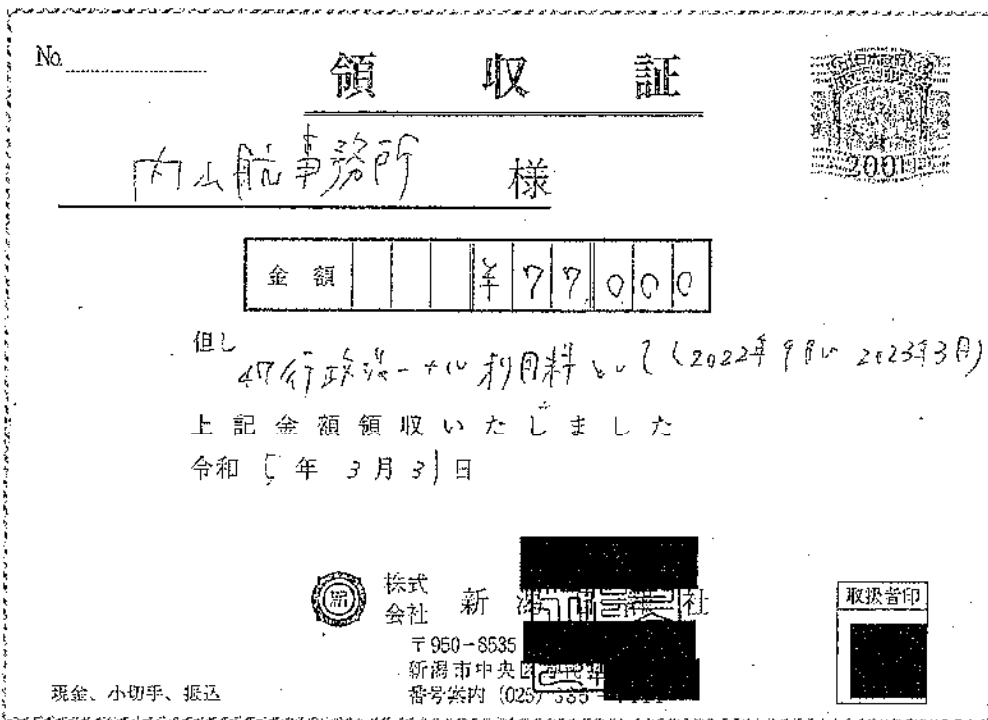 No.
領収証
200
内山航事務所 様
金額 ¥77000
但し 47行政ジャーナル利用料として(2022年9月〜2023年3月)
上記金額領収いたしました
令和5年3月31日
株式会社 新潟日報社
〒950-8535
新潟市中央区
番号案内 (025)
取扱者印
現金、小切手、振込